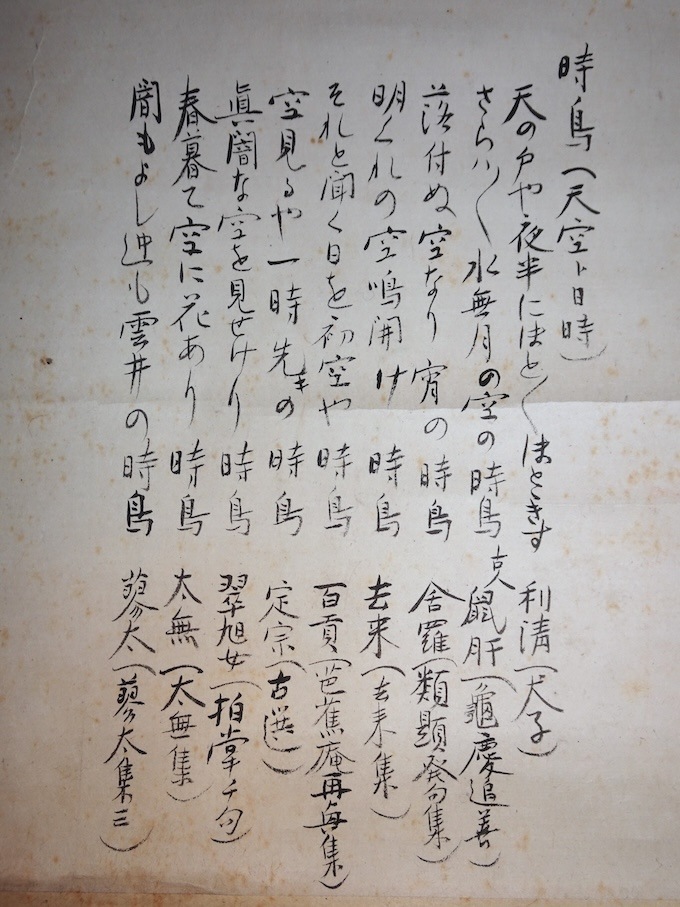 時鳥（天空ト日時）
天の戸や夜半にほと〱ほときす 利清（犬子）
さらハ〱水無月の空の時鳥 古人鼠肝（龜慶追善）
落付ぬ空なり宵の時鳥 舎羅（類題發句集）
明くれの空鳴開け時鳥 去来（去来集）
それと聞く日を初空や時鳥 百貢（芭蕉庵再興集）
空見るや一時先きの時鳥 定宗（古選）
眞闇な空を見せけり時鳥 翠旭女（拍掌千句）
春暮て空に花あり時鳥 太無（太無集）
闇もよし迚も雲井の時鳥 蓼太（蓼太集三）